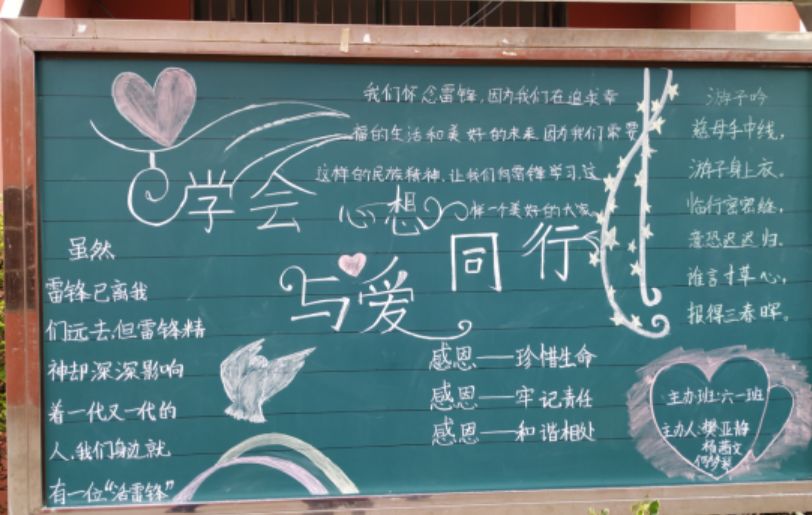 学会
心想
与爱同行
我们怀念雷锋,因为我们在追求幸
福的生活和美好的未来.因为我们需要
这样的民族精神.让我们向雷锋学习.这
样一个美好的大家
游子吟
慈母手中线,
游子身上衣。
临行密密缝,
意恐迟迟归.
谁言寸草心,
报得三春晖。
虽然
雷锋已离我
们远去,但雷锋精
神却深深影响
着一代又一代的
人,我们身边就
有一位“活雷锋”
感恩——珍惜生命
感恩——牢记责任
感恩——和谐相处
主办班:六一班
主办人:樊亚静
杨茜文